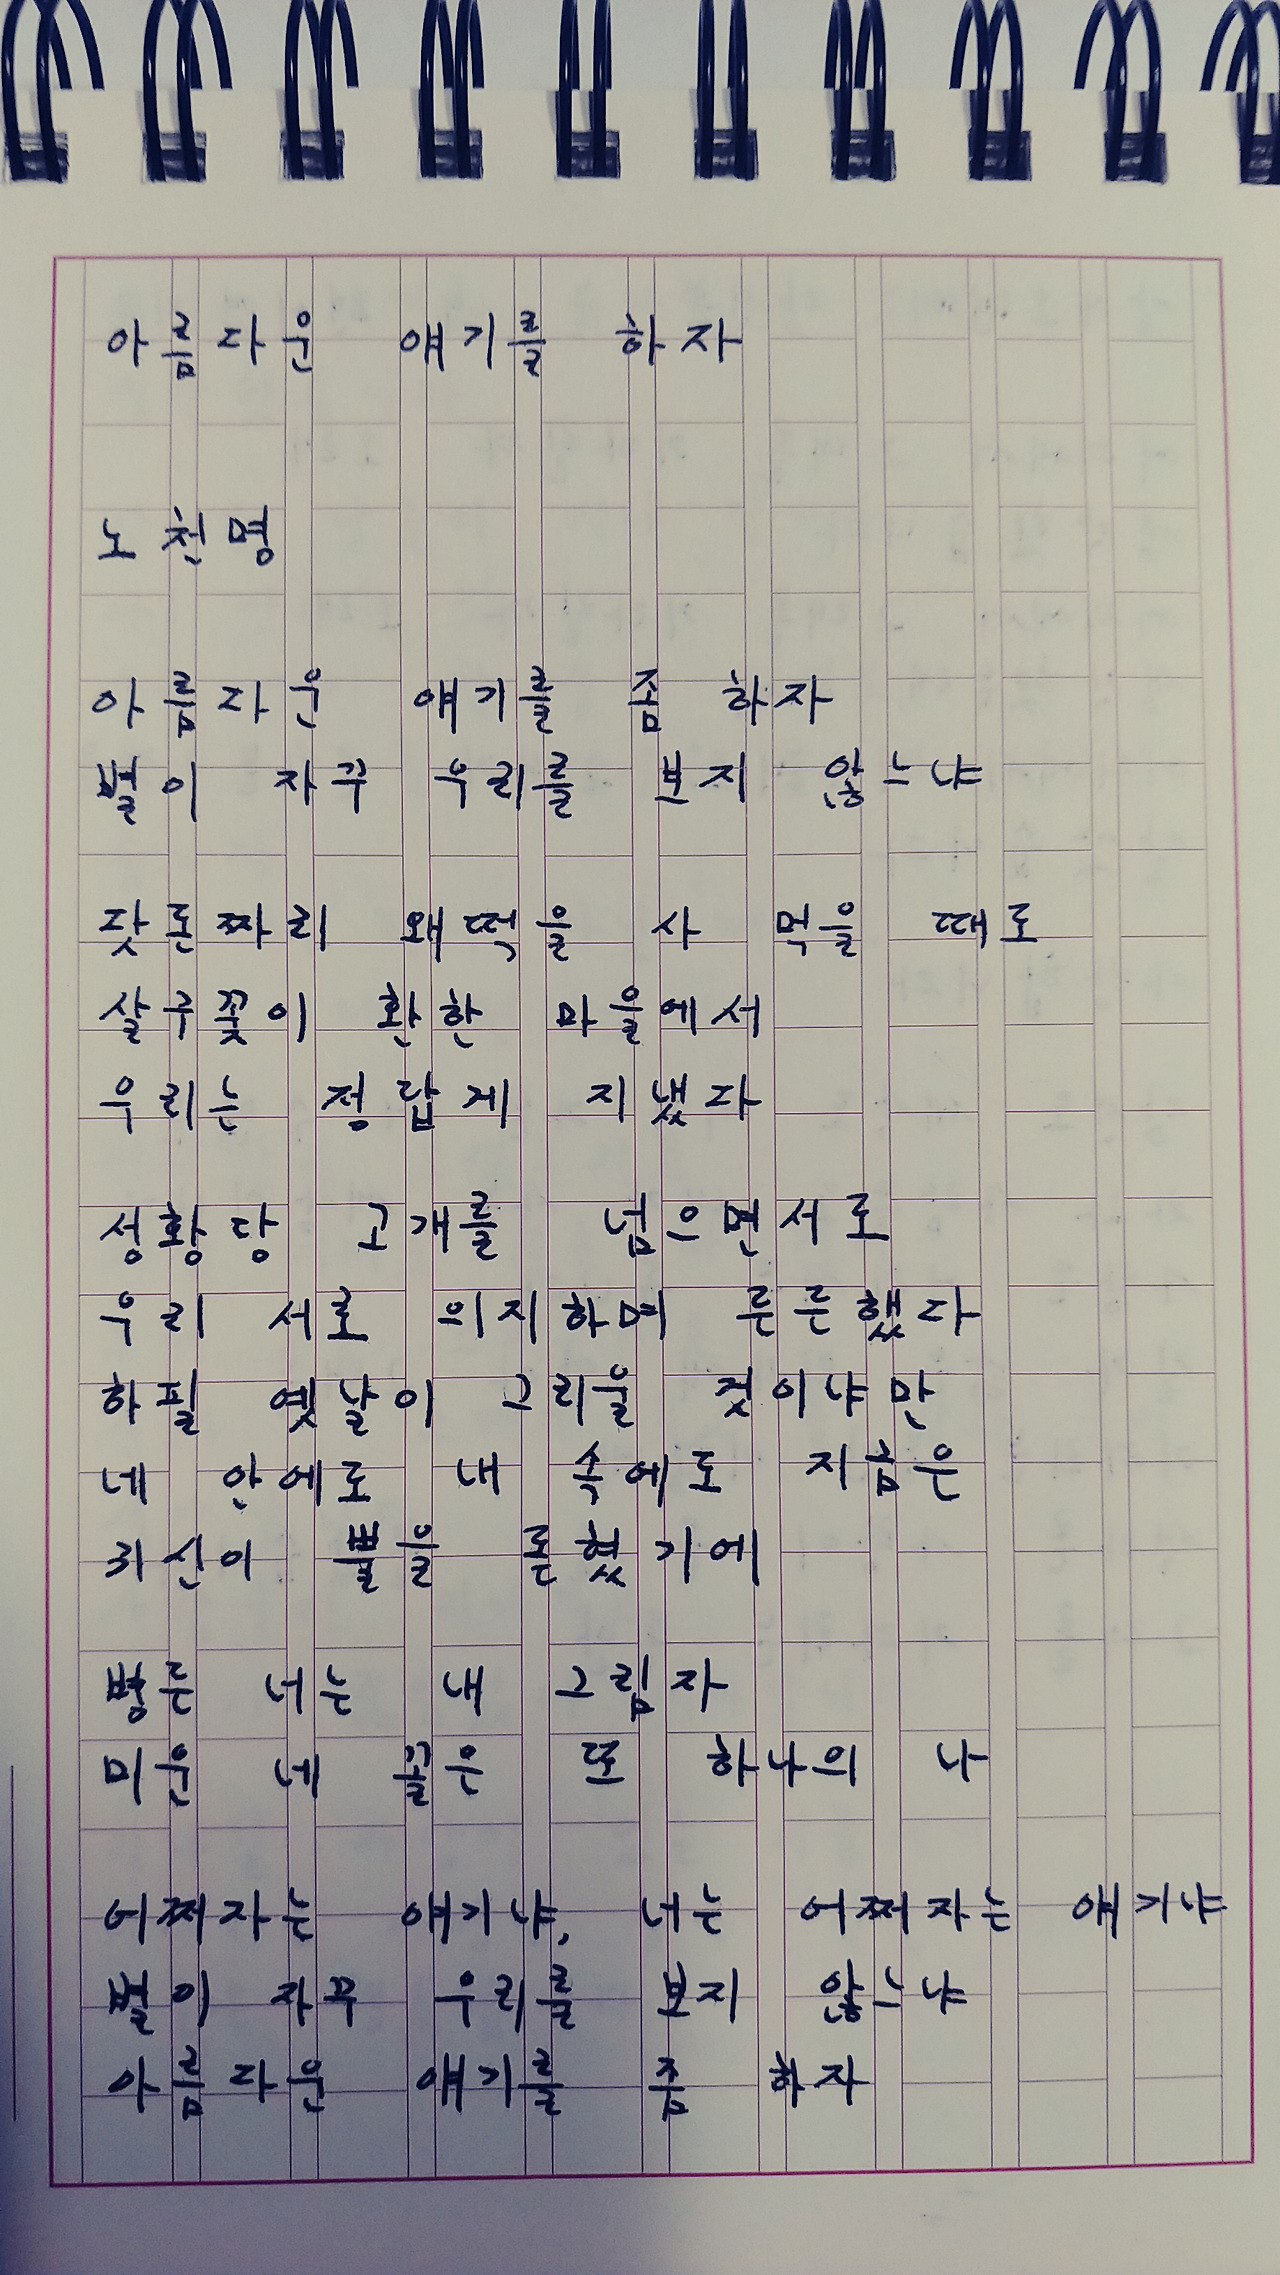 아름다운 얘기를 하자
노천명
아름다운 얘기를 좀 하자
별이 자꾸 우리를 보지 않느냐
닷돈짜리 왜떡을 사 먹을 때로
살구꽃이 환한 마을에서
우리는 정답게 지냈다
성황당 고개를 넘으면서로
우리 서로 의지하며 든든했다
하필 옛날이 그리울 것이냐만
네 안에로 내 속에도 지금은
귀신이 뿔을 돋혔기에
병든 너는 내 그림자
미운 네 꼴은 또 하나의 나
어쩌자는 얘기냐, 너는 어쩌자는 얘기냐
별이 자꾸 우리를 보지 않느냐
아름다운 얘기를 좀 하자